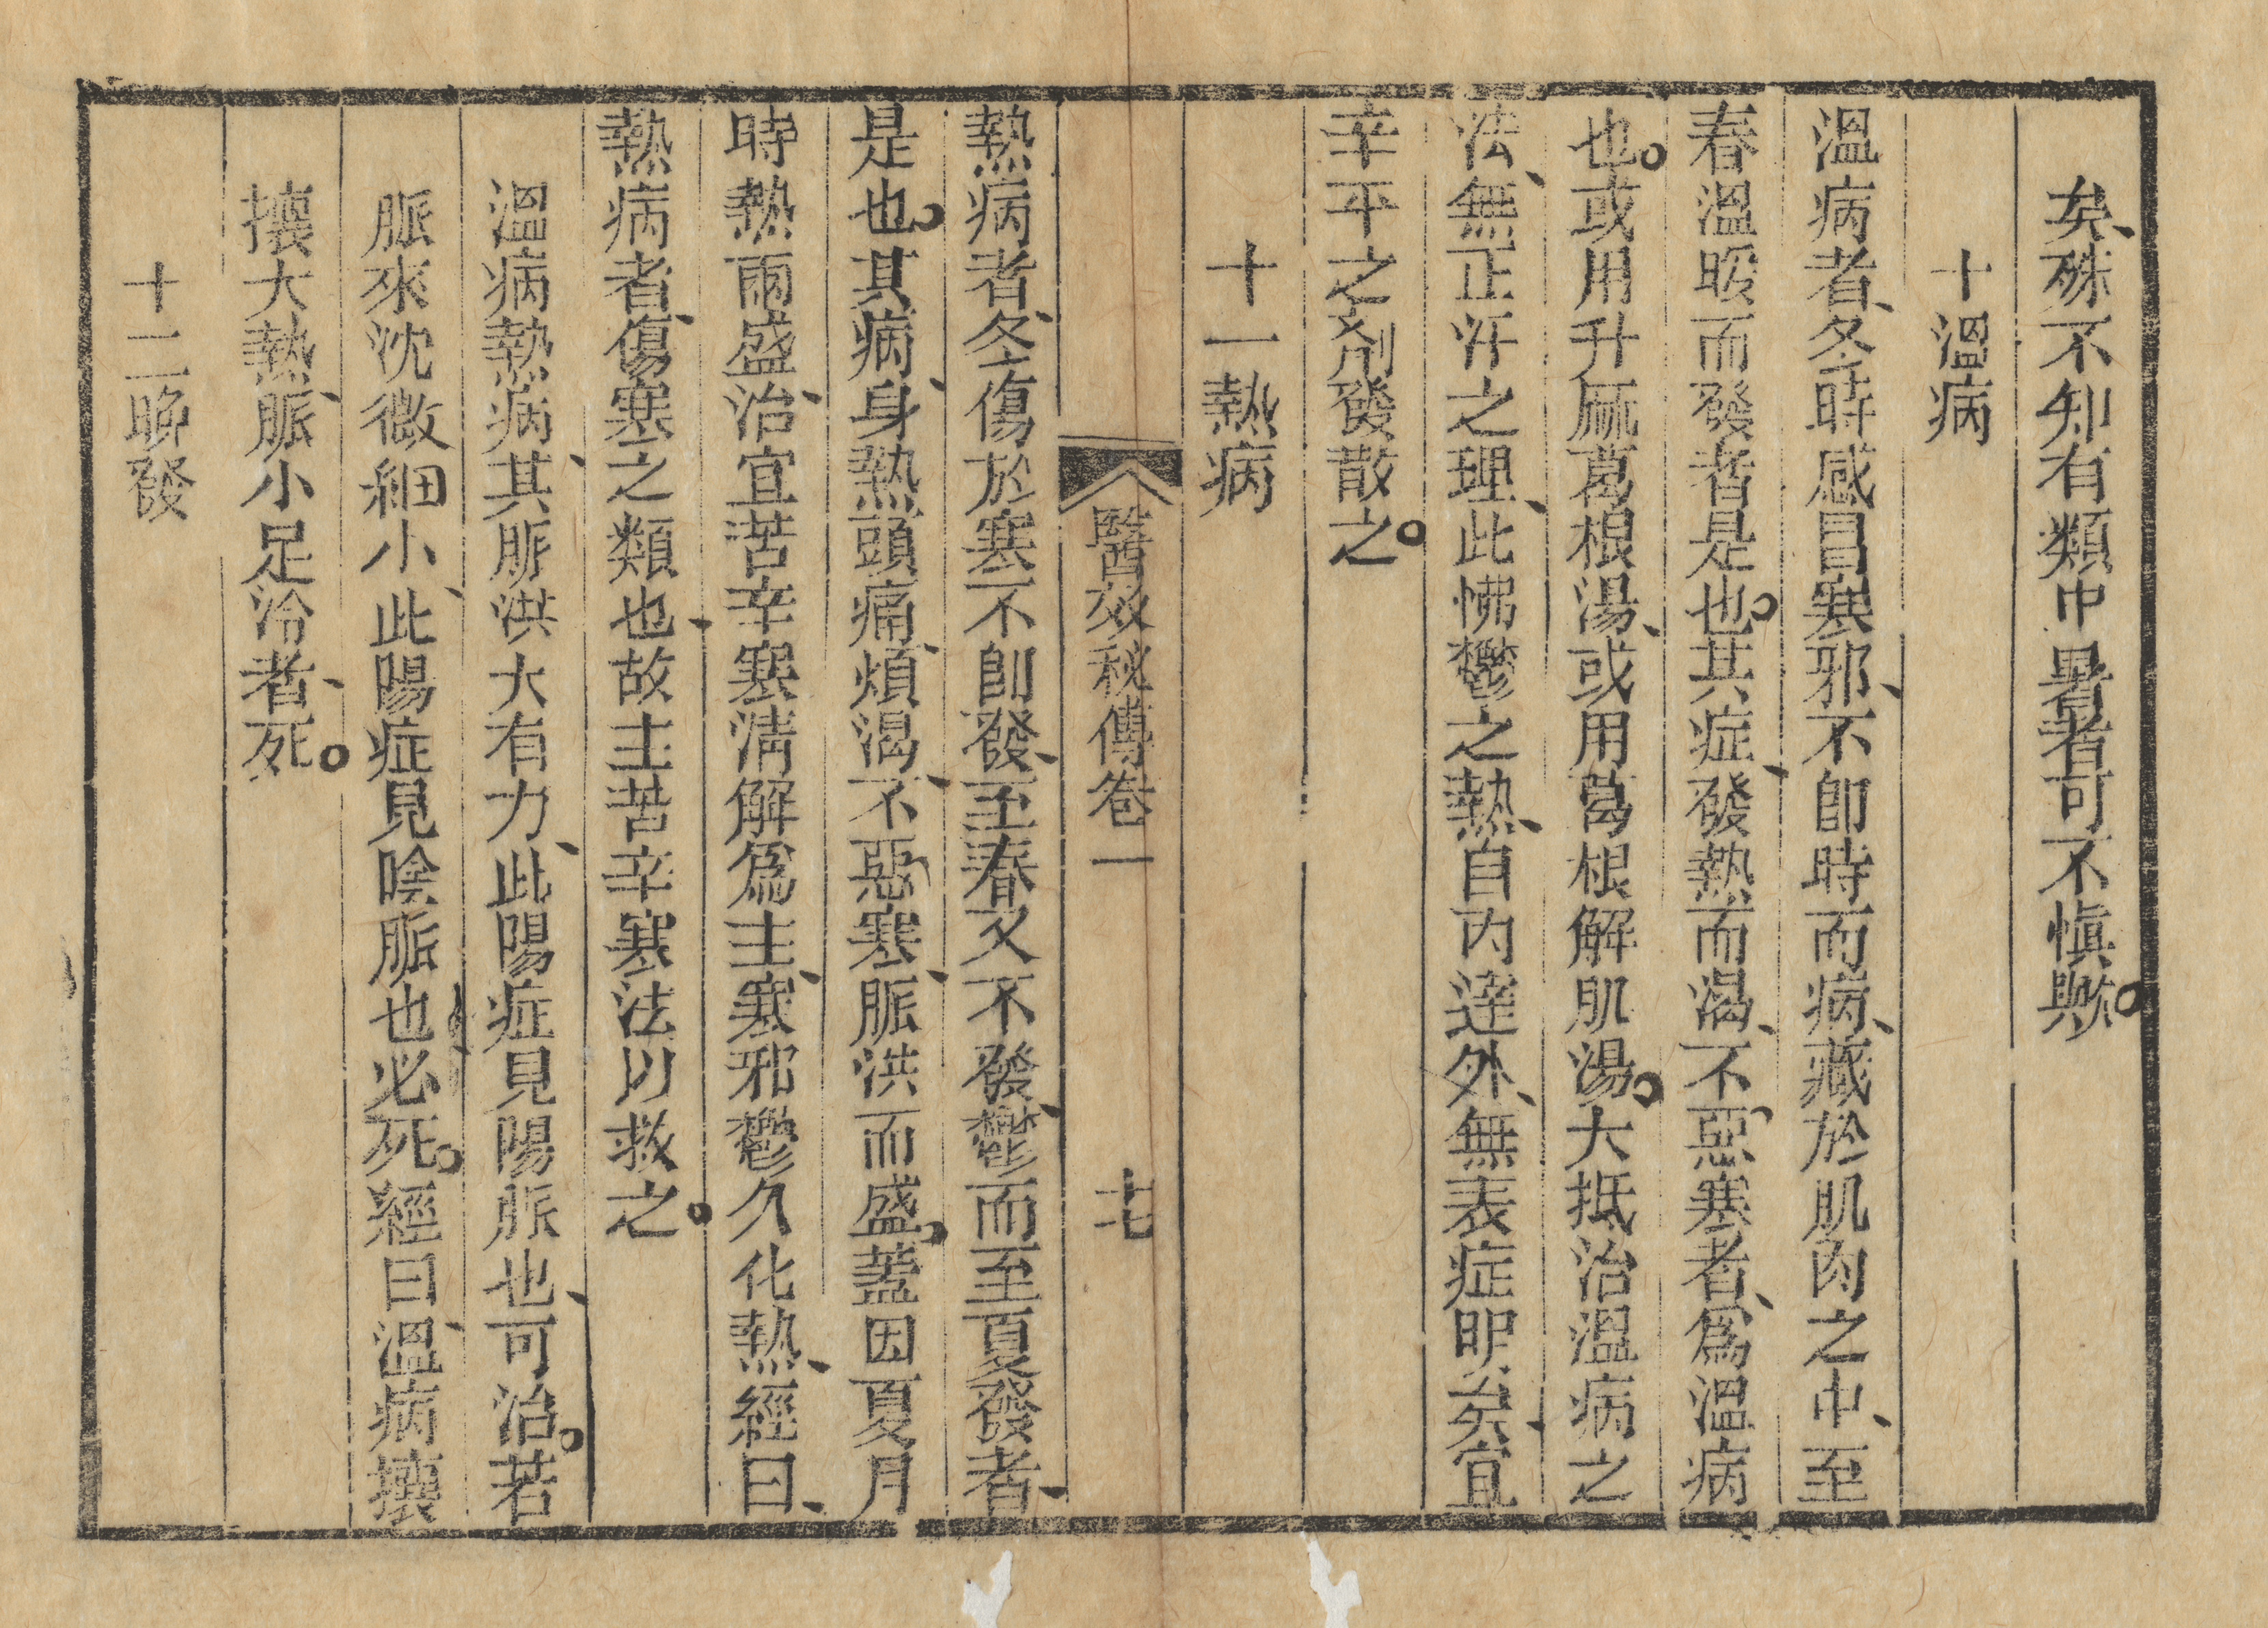 矣、殊不知有類中暑者可不慎歟。
十溫病
溫病者、冬時感冒寒邪、不卽時而病、藏於肌肉之中、至
春溫暖而發者是也。其症、發熱而渴、不惡寒者、爲溫病
也。或用升麻葛根湯、或用葛根解肌湯。大抵治溫病之
法、無正汗之理、此怫鬱之熱、自內達外、無表症明矣、宜
辛平之剤發散之。
十一熱病
醫效秘傳卷一
十七
熱病者、冬傷於寒不卽發、至春又不發、鬱而至夏發者、
是也。其病、身熱頭痛、煩渴、不惡寒、脈洪而盛。蓋因夏月
時熱雨盛、治宜苦辛寒清解爲主、寒邪鬱久化熱、經曰、
熱病者、傷寒之類也、故主苦辛寒法以救之。
溫病熱病、其脈洪大有力、此陽症見陽脈也、可治。若
脈來沈微細小、此陽症見陰脈也、必死。經曰、溫病壤
攘大熱、脈小足冷者、死。
十二晚發